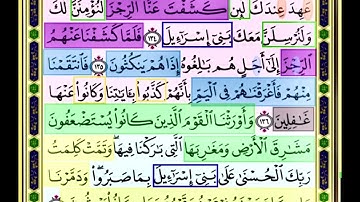 عَهِدَ عِندَكَ لَئِن كَشَفْتَ عَنَّا ٱلرِّجْزَ لَنُؤْمِنَنَّ لَكَ
وَلَنُرْسِلَنَّ مَعَكَ بَنِىٓ إِسْرَٰٓءِيلَ ١٣٤ فَلَمَّا كَشَفْنَا عَنْهُمُ
ٱلرِّجْزَ إِلَىٰٓ أَجَلٍ هُم بَـٰلِغُوهُ إِذَا هُمْ يَنكُثُونَ ١٣٥ فَٱنتَقَمْنَا
مِنْهُمْ فَأَغْرَقْنَـٰهُمْ فِى ٱلْيَمِّ بِأَنَّهُمْ كَذَّبُوا۟ بِـَٔايَـٰتِنَا وَكَانُوا۟ عَنْهَا
غَـٰفِلِينَ ١٣٦ وَأَوْرَثْنَا ٱلْقَوْمَ ٱلَّذِينَ كَانُوا۟ يُسْتَضْعَفُونَ
مَشَـٰرِقَ ٱلْأَرْضِ وَمَغَـٰرِبَهَا ٱلَّتِى بَـٰرَكْنَا فِيهَا ۖ وَتَمَّتْ كَلِمَتُ
رَبِّكَ ٱلْحُسْنَىٰ عَلَىٰ بَنِىٓ إِسْرَٰٓءِيلَ بِمَا صَبَرُوا۟ ۖ وَدَمَّرْنَا